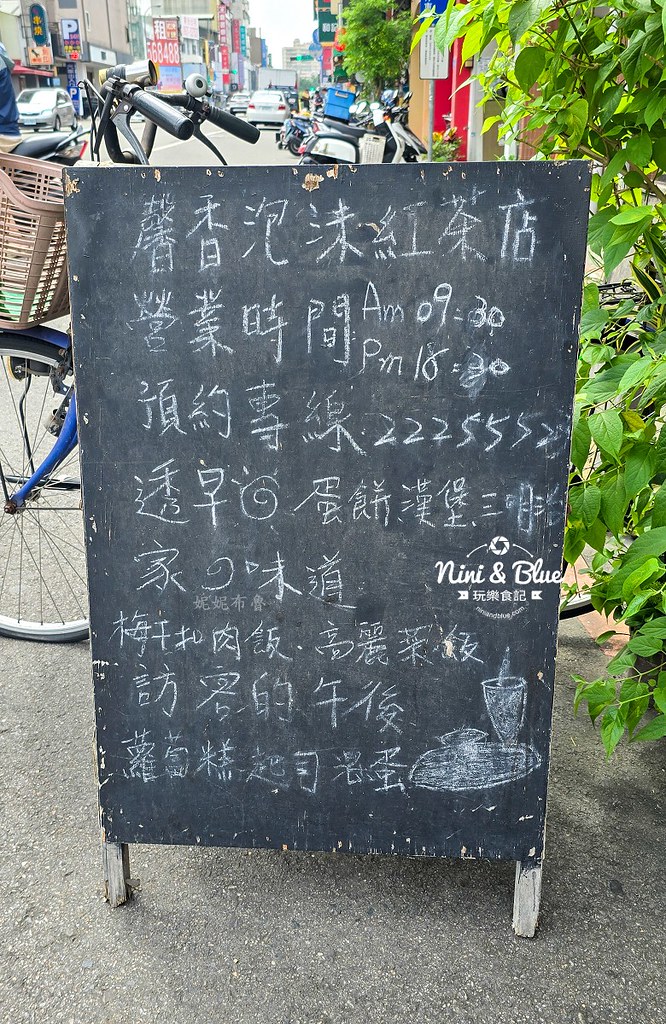 馨香泡沫紅茶店
營業時間 Am 09:30
Pm 18:30
預約專線 22255523
透早 蛋餅漢堡三明治
家の味道
梅干扣肉飯.高麗菜飯
訪客的午後
蘿蔔糕起司溫蛋
Nini & Blue
玩樂食記
niniandblue.com
妮妮布魯
租
568488
P
串燒